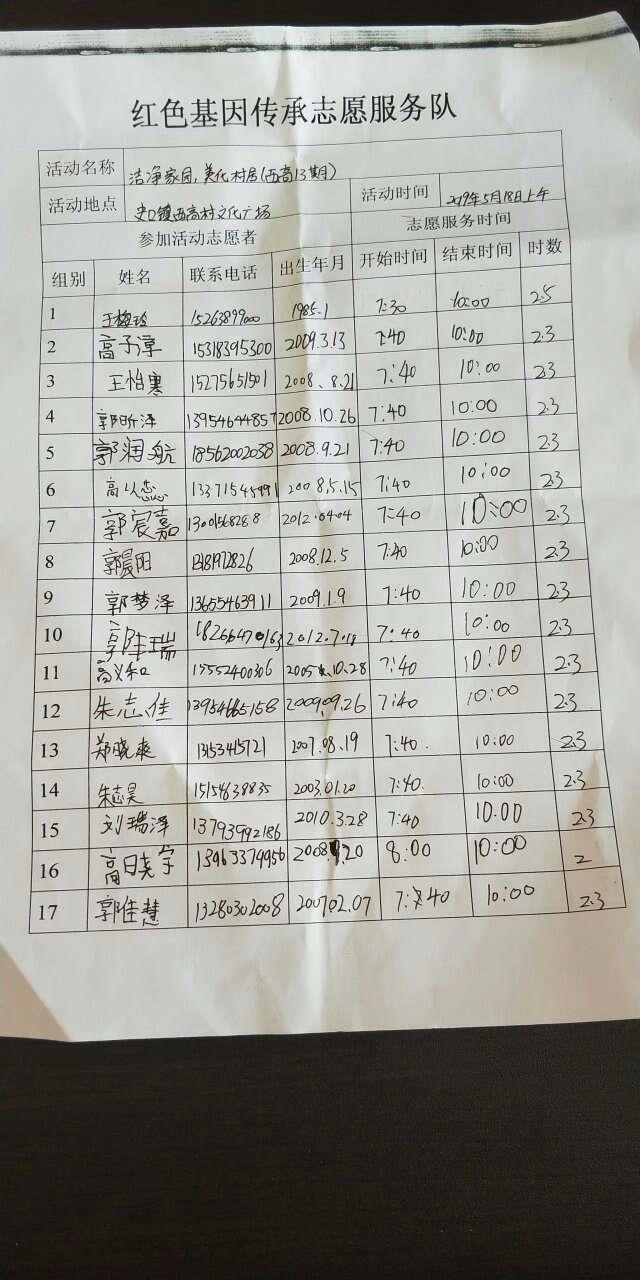 红色基因传承志愿服务队
活动名称 洁净家园,美化村居(西高13期)
活动地点 史口镇西高村文化广场 活动时间 2019年5月18日上午
参加活动志愿者 志愿服务时间
组别 姓名 联系电话 出生年月 开始时间 结束时间 时数
1 王梅玲 15263899000 1985.1 7:30 10:00 2.5
2 高子淳 15318395300 2009.3.13 7:40 10:00 2.3
3 王怡寒 15275651501 2008.8.21 7:40 10:00 2.3
4 郭昕泽 13954644857 2008.10.26 7:40 10:00 2.3
5 郭润航 18562002038 2008.9.21 7:40 10:00 2.3
6 2008.5.15 7:40 10:00 2.3
7 郭宸嘉 13001568288 2012.04.04 7:40 10:00 2.3
8 郭晨阳 13181972826 2008.12.5 7:40 10:00 2.3
9 郭梦泽 13655463911 2009.1.9 7:40 10:00 2.3
10 7:40 10:00 2.3
11 高义和 15552400306 2005.10.28 7:40 10:00 2.3
12 朱志佳 13954665158 2009.09.26 7:40 10:00 2.3
13 郑晓爽 13153415721 2007.08.19 7:40 10:00 2.3
14 朱志昊 15154638835 2003.01.20 7:40 10:00 2.3
15 刘瑞泽 13793992186 2010.3.28 7:40 10:00 2.3
16 13963374956 8:00 10:00 2
17 郭佳慧 13280302008 2007.02.07 7:40 10:00 2.3